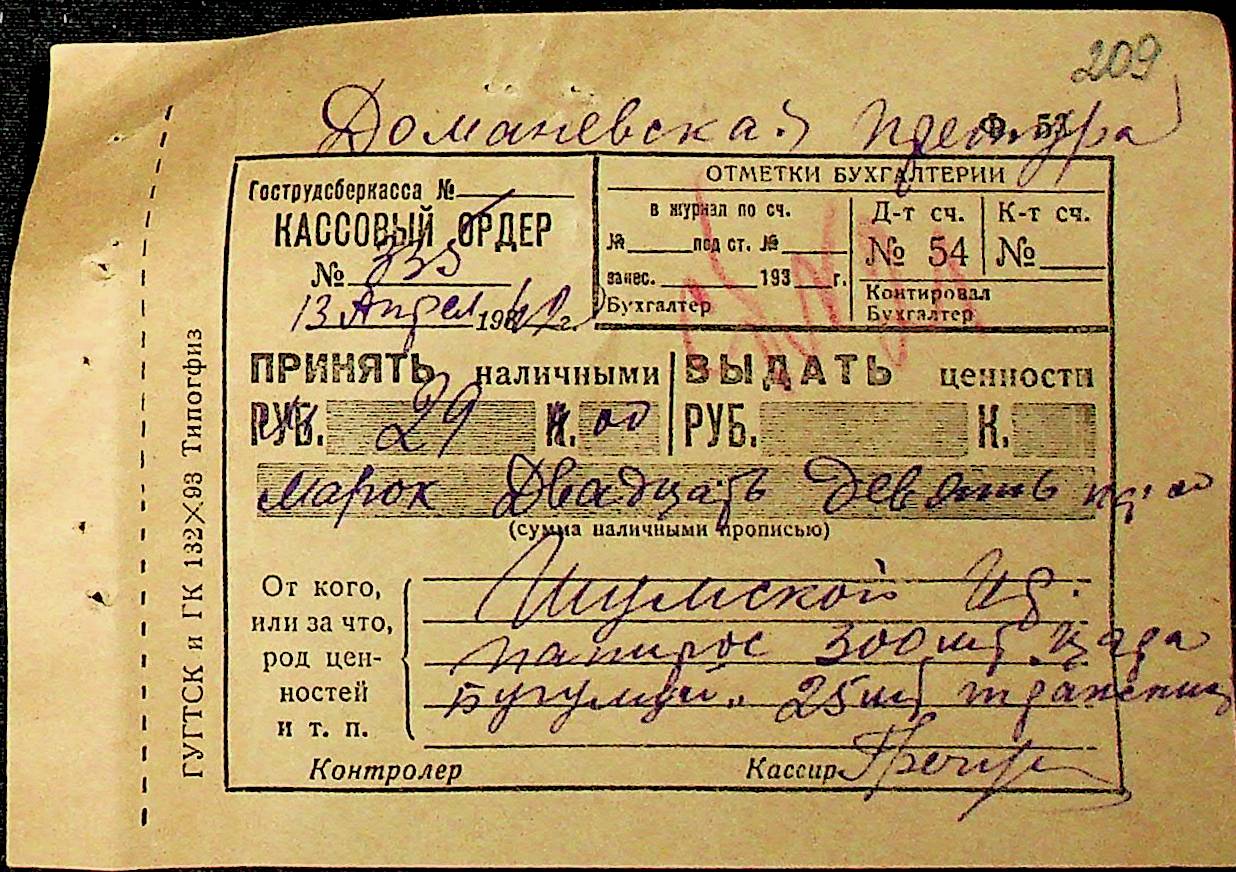 209
Доманевская претура
Ф. 51
Гострудсберкасса №
КАССОВЫЙ ОРДЕР
№ 335
13 Апрел 194 г.
ОТМЕТКИ БУХГАЛТЕРИИ
в журнал по сч.
№ под ст. №
занес. 193 г.
Бухгалтер
Д-т сч.
№ 54
К-т сч.
№
Контировал
Бухгалтер
ПРИНЯТЬ наличными
РУБ. 29 К. 00
ВЫДАТЬ ценности
РУБ. К.
марок Двадцать девять
(сумма наличными прописью)
От кого,
или за что,
род цен-
ностей
и т. п.
Шумской
папирос 300 шт
25 шт
Контролер
Кассир
ГУГТСК и ГК 132×93 Типогфиз